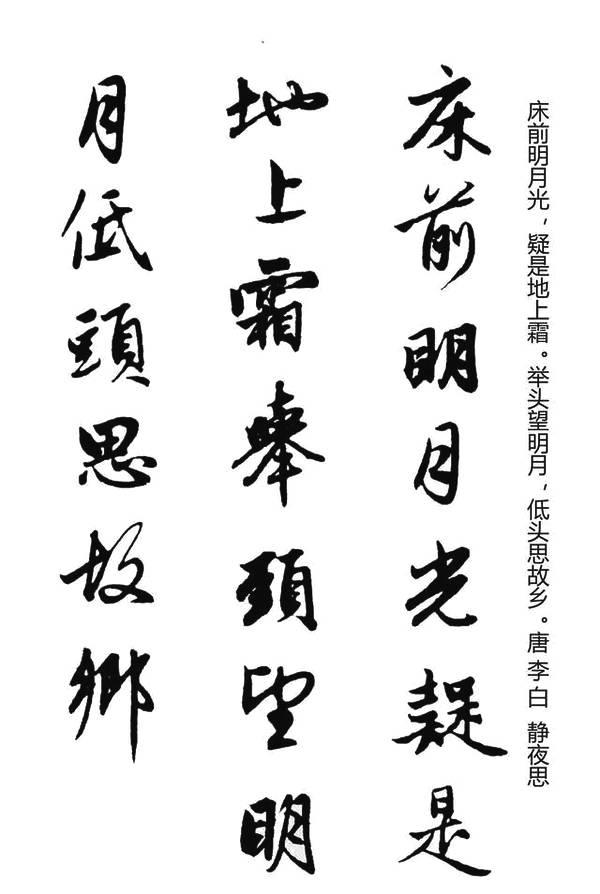 床前明月光，疑是地上霜。举头望明月，低头思故乡。唐 李白 静夜思
床前明月光疑是
地上霜舉頭望明
月低頭思故鄉